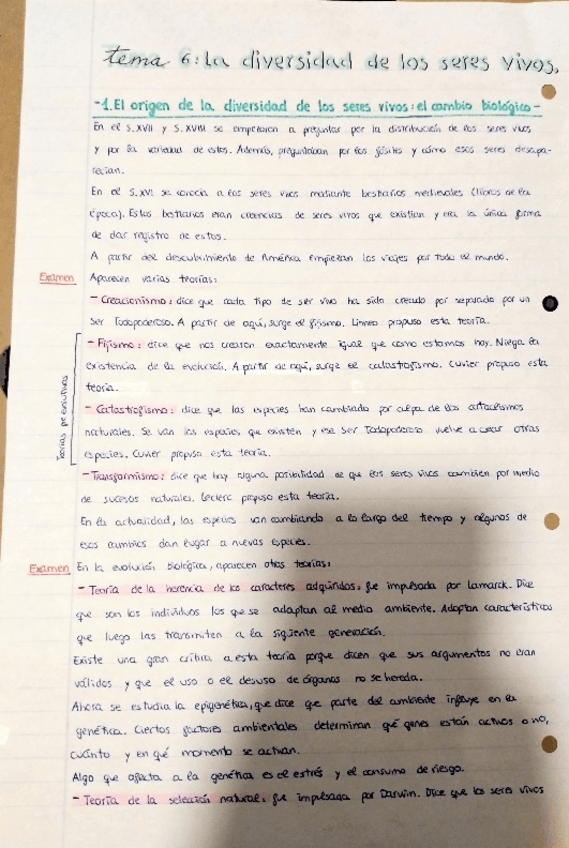 tema 6: La diversidad de los seres vivos.
-1. El origen de la diversidad de los seres vivos: el cambio biológico-
En el S.XVII y S.XVIII se empezaron a preguntar por la distribución de los seres vivos
y por la variedad de estos. Además, preguntaban por los fósiles y cómo esos seres desapa-
recían.
En el S.XVI se conocía a los seres vivos mediante bestiarios medievales (libros de la
época). Estos bestiarios eran creencias de seres vivos que existían y era la única forma
de dar registro de estos.
A partir del descubrimiento de América empiezan los viajes por todo el mundo.
Examen Aparecen varias teorías:
- Creacionismo: dice que cada tipo de ser vivo ha sido creado por separado por un
Ser Todopoderoso. A partir de aquí, surge el fijismo. Linneo propuso esta teoría.
- Fijismo: dice que nos crearon exactamente igual que como estamos hoy. Niega la
existencia de la evolución. A partir de aquí, surge el catastrofismo. Cuvier propuso esta
teoría.
Teorías preevolutivas
- Catastrofismo: dice que las especies han cambiado por culpa de los cataclismos
naturales. Se van las especies que existen y ese Ser Todopoderoso vuelve a crear otras
especies. Cuvier propuso esta teoría.
- Transformismo: dice que hay alguna posibilidad de que los seres vivos cambien por medio
de sucesos naturales. Leclerc propuso esta teoría.
En la actualidad, las especies van cambiando a lo largo del tiempo y algunos de
esos cambios dan lugar a nuevas especies.
Examen En la evolución biológica, aparecen otras teorías:
- Teoría de la herencia de los caracteres adquiridos: fue impulsada por Lamarck. Dice
que son los individuos los que se adaptan al medio ambiente. Adoptan características
que luego las transmiten a la siguiente generación.
Existe una gran crítica a esta teoría porque dicen que sus argumentos no eran
válidos y que el uso o el desuso de órganos no se hereda.
Ahora se estudia la epigenética, que dice que parte del ambiente influye en la
genética. Ciertos factores ambientales determinan qué genes están activos o no,
cuánto y en qué momento se activan.
Algo que afecta a la genética es el estrés y el consumo de riesgo.
- Teoría de la selección natural: fue impulsada por Darwin. Dice que los seres vivos